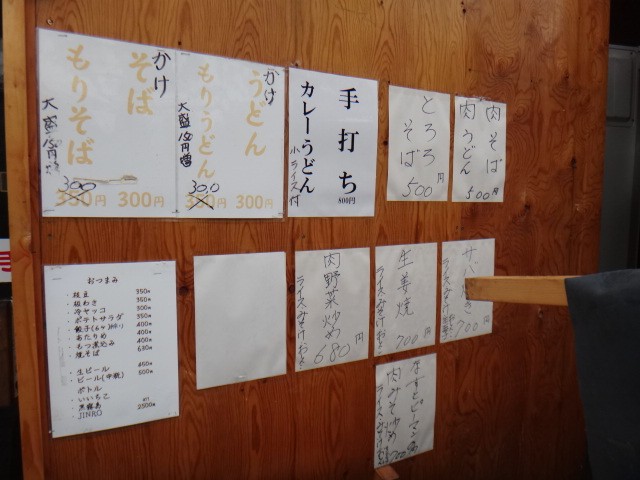 かけ
そば
もりそば
大盛150円増
300
350円
300円
かけ
うどん
もりうどん
大盛150円増
300
350円
300円
手打ち
カレーうどん
小ライス付
800円
とろろ
そば
500円
肉そば
肉うどん
500円
おつまみ
・枝豆 350円
・板わさ 350円
・冷ヤッコ 300円
・ポテトサラダ 350円
・餃子(6ヶ) 400円
・あたりめ 400円
・もつ煮込み 400円
・焼そば 630円
・生ビール 450円
・ビール(中瓶) 500円
ボトル
・いいちこ
・黒霧島 all
・JINRO 2500円
肉野菜炒め
ライスみそ汁おしんこ
680円
生姜焼
ライスみそ汁
700円
サバ
ライスみそ汁
700円
ピーマン
肉みそ炒め
ライスみそ汁